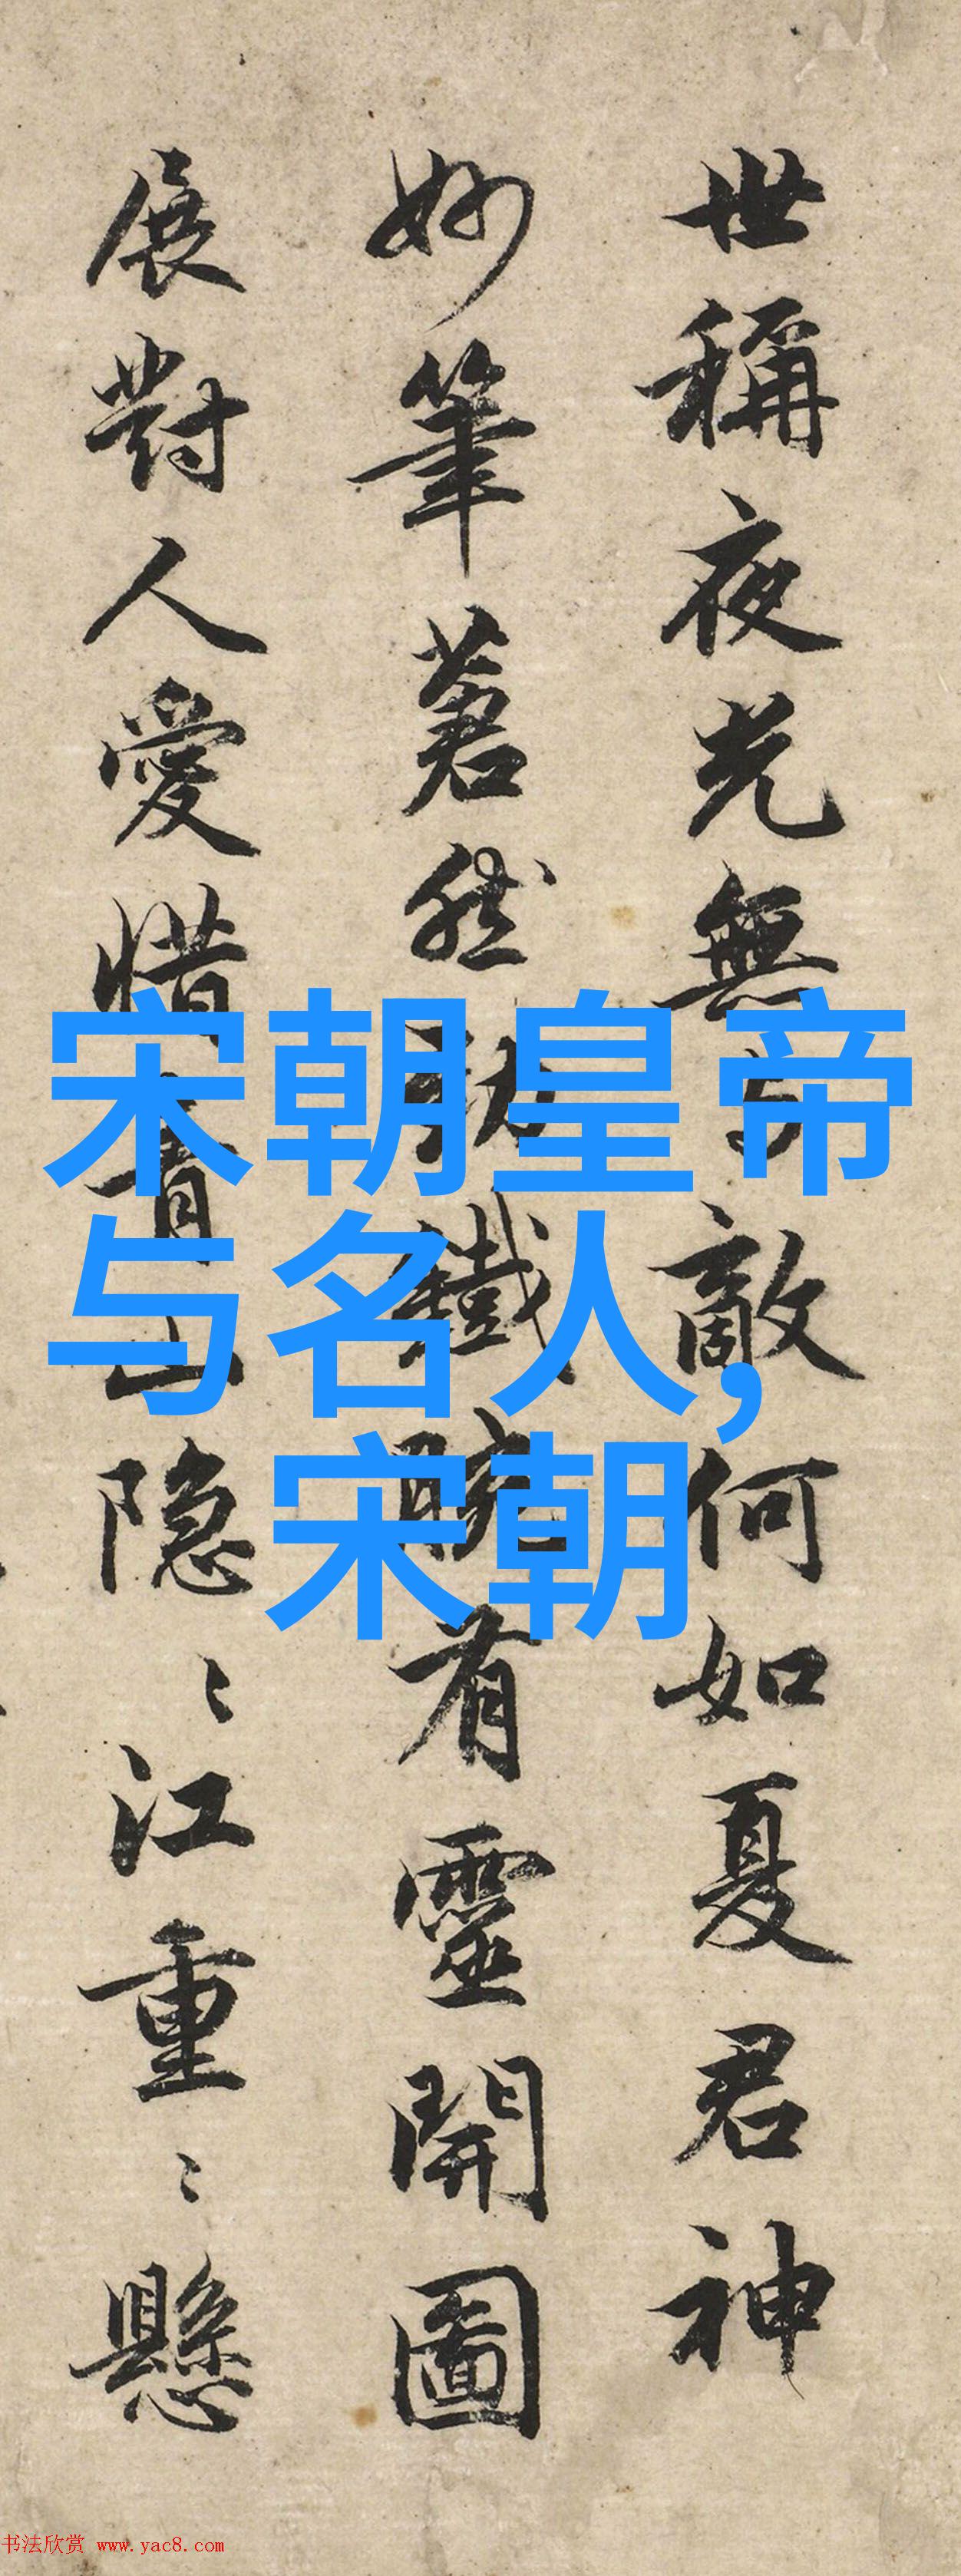 世稱夜光無敵何如夏君神
妙筆蒼然鐵腕有靈開圖
展對人愛惜青山隱〻江重〻懸
宋朝皇帝
与名人,
宋朝
书法欣赏 www.yac8.com